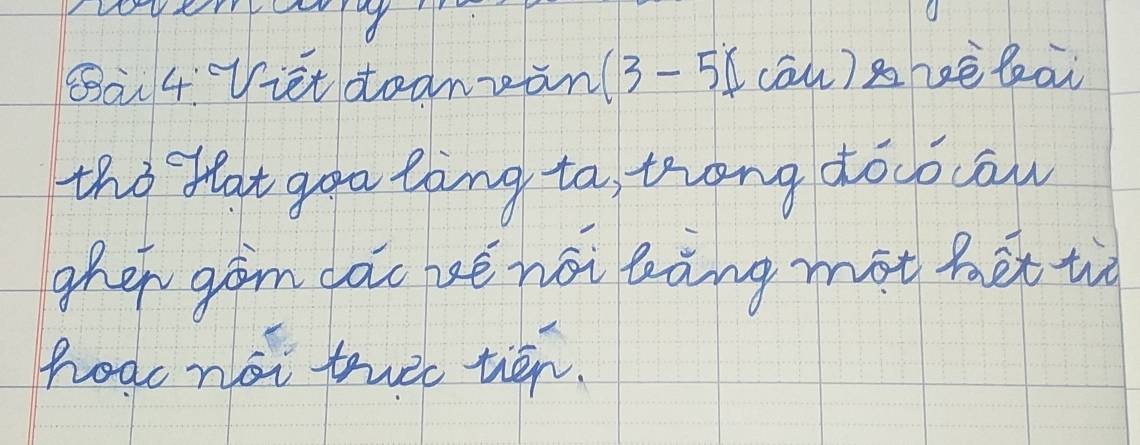 Bài 4: Viết đoạn văn (3 - 5 câu) về bài
thơ Hạt gạo làng ta, trong đó có câu
ghép gồm các vế nối bằng một kết từ
hoặc nối trực tiếp.